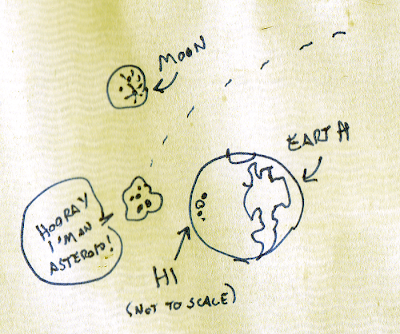 MOON
EARTH
HOORAY
I'M AN
ASTEROID!
HI
(NOT TO SCALE)